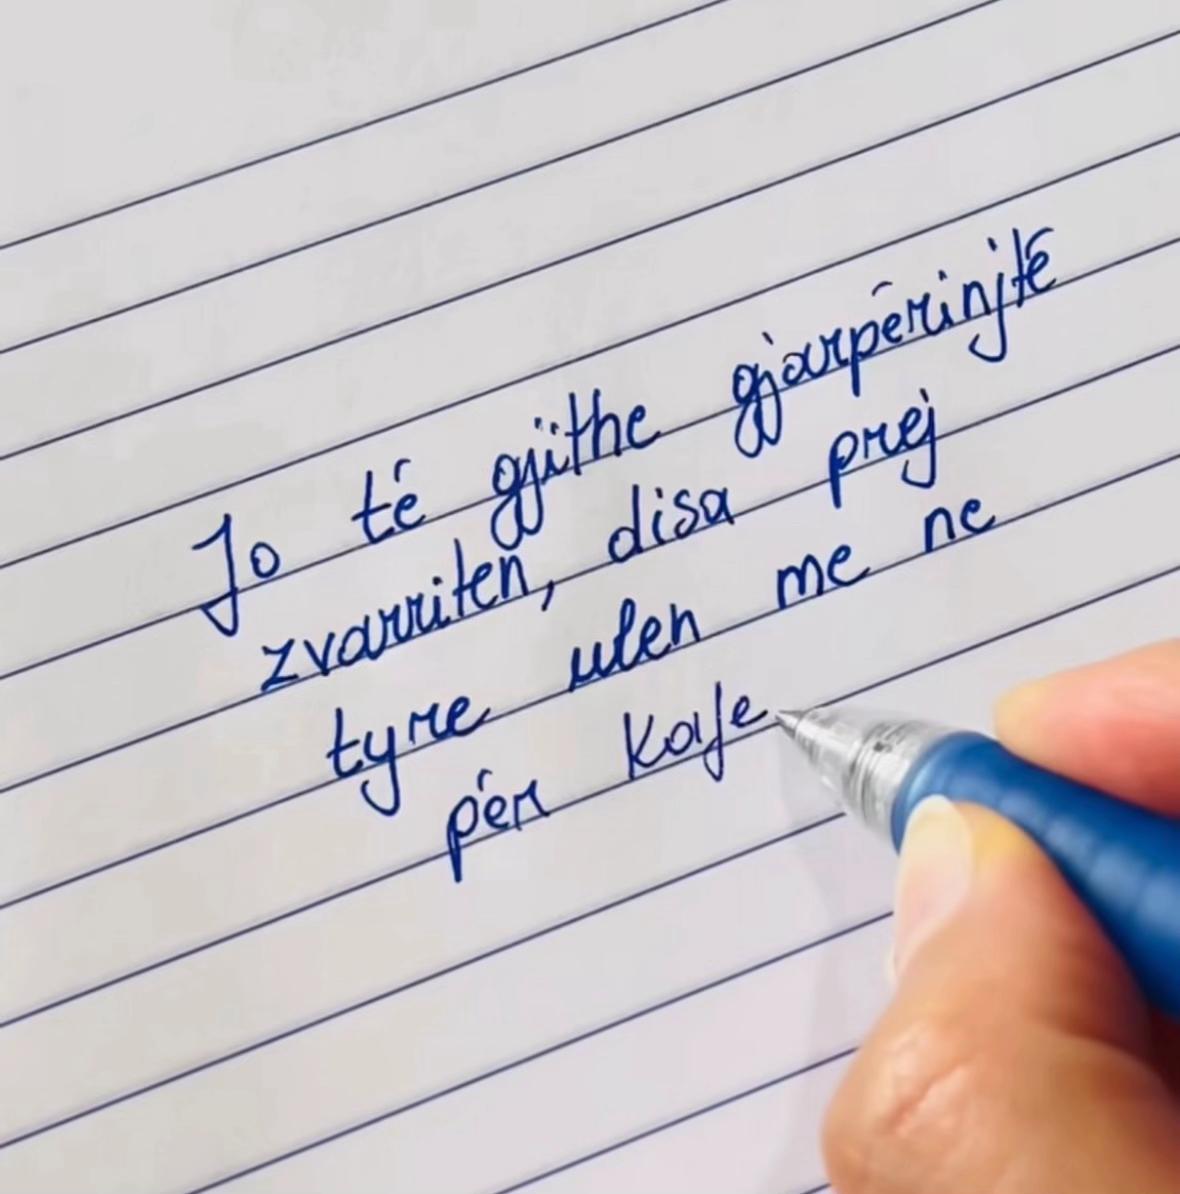 Jo të gjithe gjarpërinjtë
zvarriten, disa prej
tyre ulen me ne
për kafe